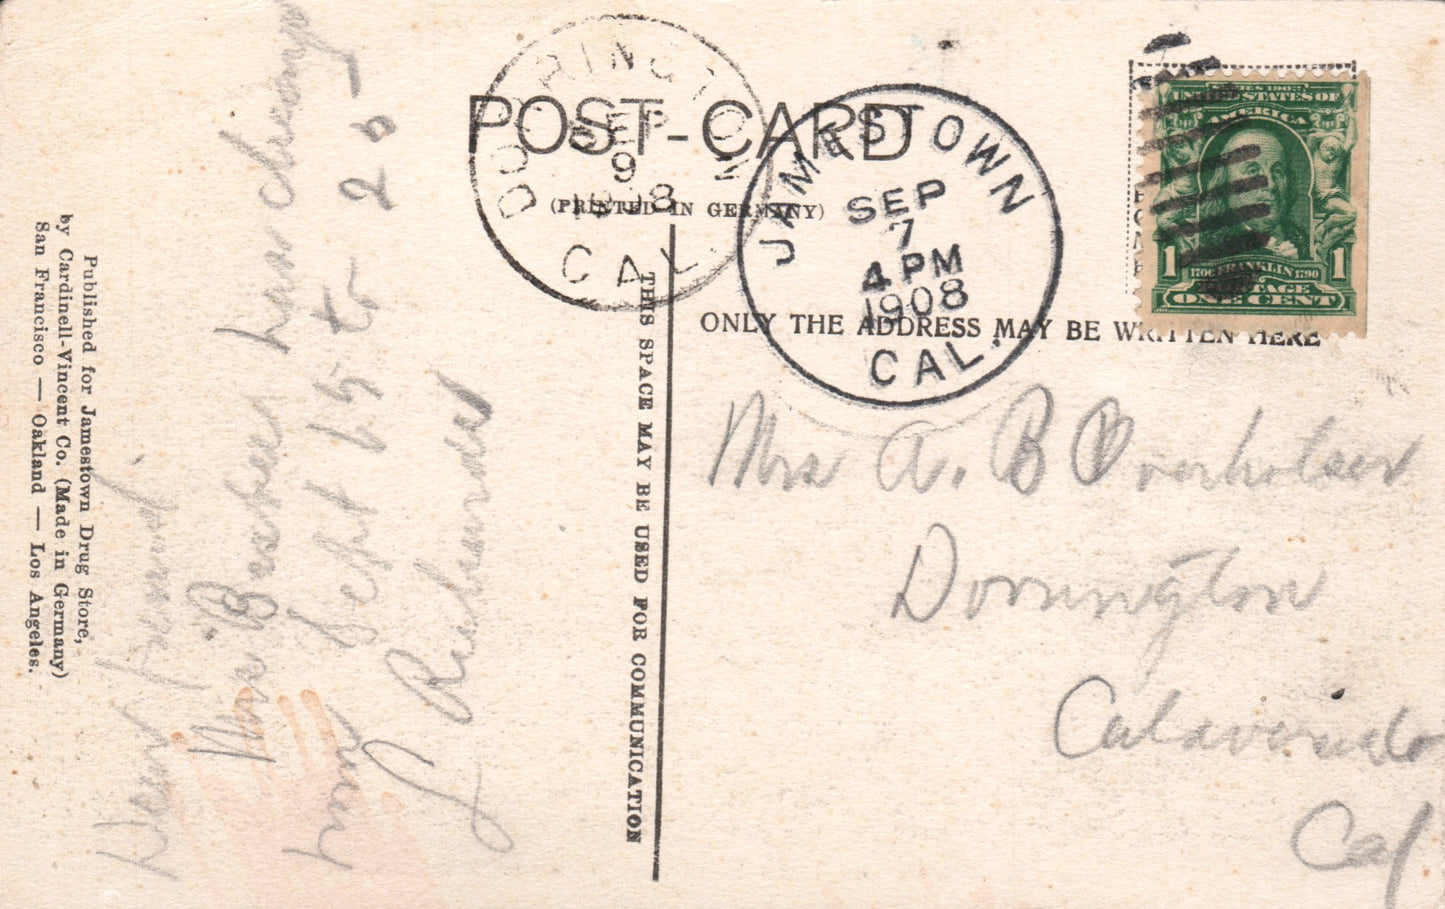 POST-CARD
(PRINTED IN GERMANY)
DORRINGTON
SEP
9
1908
CAL.
JAMESTOWN
SEP
7
4 PM
1908
CAL.
SERIES 1902
UNITED STATES OF
AMERICA
1 1706 FRANKLIN 1790 1
POSTAGE
ONE CENT
ONLY THE ADDRESS MAY BE WRITTEN HERE
Mrs A. B Overholser
Dorrington
Calaveras Co
Cal
THIS SPACE MAY BE USED FOR COMMUNICATION
Dear Friend.
Mrs Barber has change
her Sept 15 to 20
L Richards
Published for Jamestown Drug Store,
by Cardinell-Vincent Co. (Made in Germany)
San Francisco — Oakland — Los Angeles.